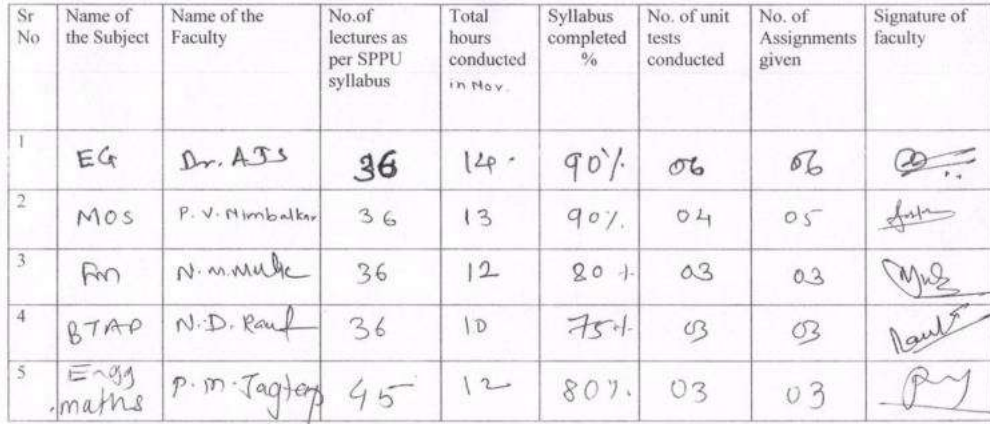 Sr No Name of the Subject Name of the Faculty No.of lectures as per SPPU syllabus Total hours conducted in Nov. Syllabus completed % No. of unit tests conducted No. of Assignments given Signature of faculty
1 EG Dr. AJS 36 14. 90% 06 06
2 MOS P. V. Nimbalkar 36 13 90%. 04 05
3 Fm N. m. Mulk 36 12 80 % 03 03
4 BTAP N. D. Raut 36 10 75% 03 03 Raut
5 Engg maths P. m. Jagtap 45 12 80%. 03 03